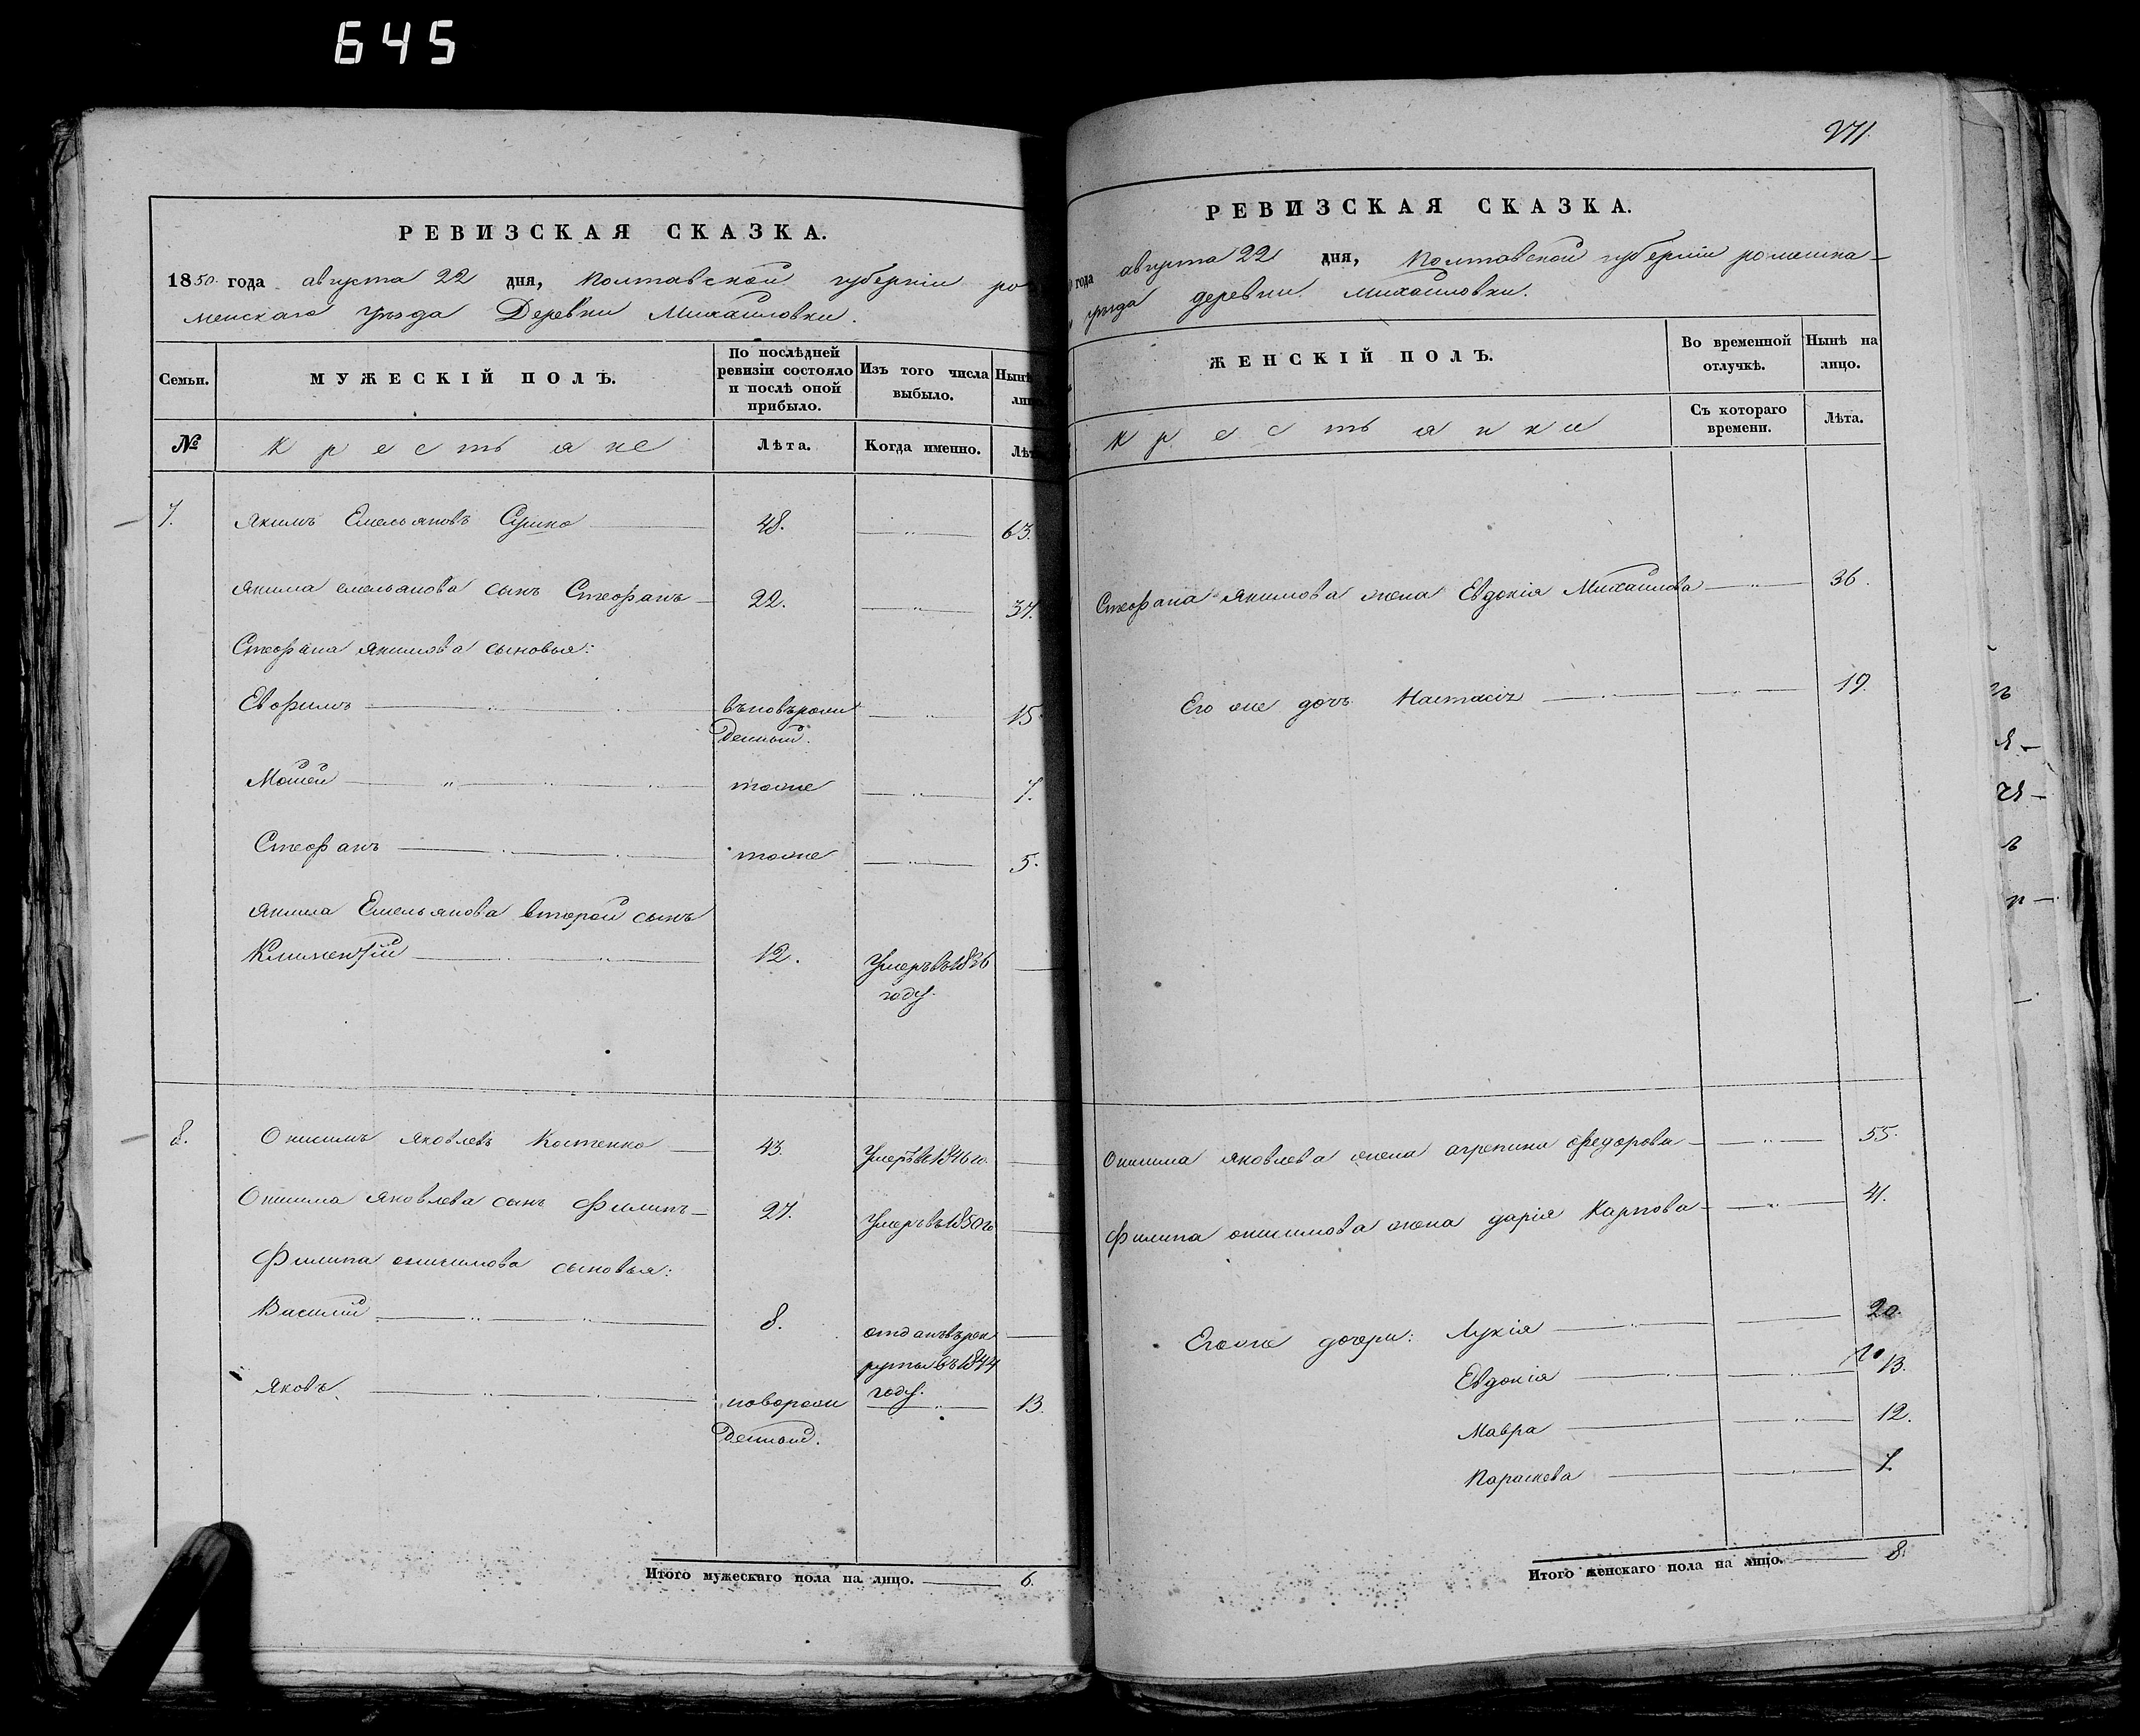 645
РЕВИЗСКАЯ СКАЗКА.
1850. года августа 22 дня, Полтавской губерніи ро
менскаго уѣзда Деревни Михайловки.
Семьи.
МУЖЕСКІЙ ПОЛЪ.
По послѣдней ревизіи состояло и послѣ оной прибыло.
Изъ того числа выбыло.
Нынѣ
№
Крестьяне
Лѣта.
Когда именно.
7. Якимъ Емельяновъ 48. 63.
Якима емельянова сынъ Стефанъ 22. 37.
Стефана якимова сыновья:
Евфимъ въновърож 15
денный.
Мойсей тоже 7.
Стефанъ тоже 5.
Якима Емельянова второй сынъ
Климентій 12. Умеръ въ 1836
году.
8. Онисимъ яковлевъ Костенко 43. Умеръ въ 1846 го.
Онисима яковлева сынъ Филипъ 27. Умеръ въ 1850 го
Филипа онисимова сыновья:
Василій 8. отданъ въ рек
руты въ 1844
году.
Яковъ новорож 13.
денный.
Итого мужескаго пола на лицо. 6.
271.
РЕВИЗСКАЯ СКАЗКА.
года августа 22 дня, Полтавской губерніи роменска
уѣзда деревни Михайловки.
ЖЕНСКІЙ ПОЛЪ.
Во временной отлучкѣ.
Нынѣ на лицо.
Крестьянки
Съ котораго времени.
Лѣта.
Стефана якимова жена Евдокія Михайлова 36.
Его же дочь Настасія 19.
Онисима яковлева жена агрепина федорова 55.
Филипа онисимова жена дарія Карпова 41.
Егоже дочери: Лукія 20.
Евдокія 13.
Мавра 12.
Параскева 7.
Итого женскаго пола на лицо. 8.